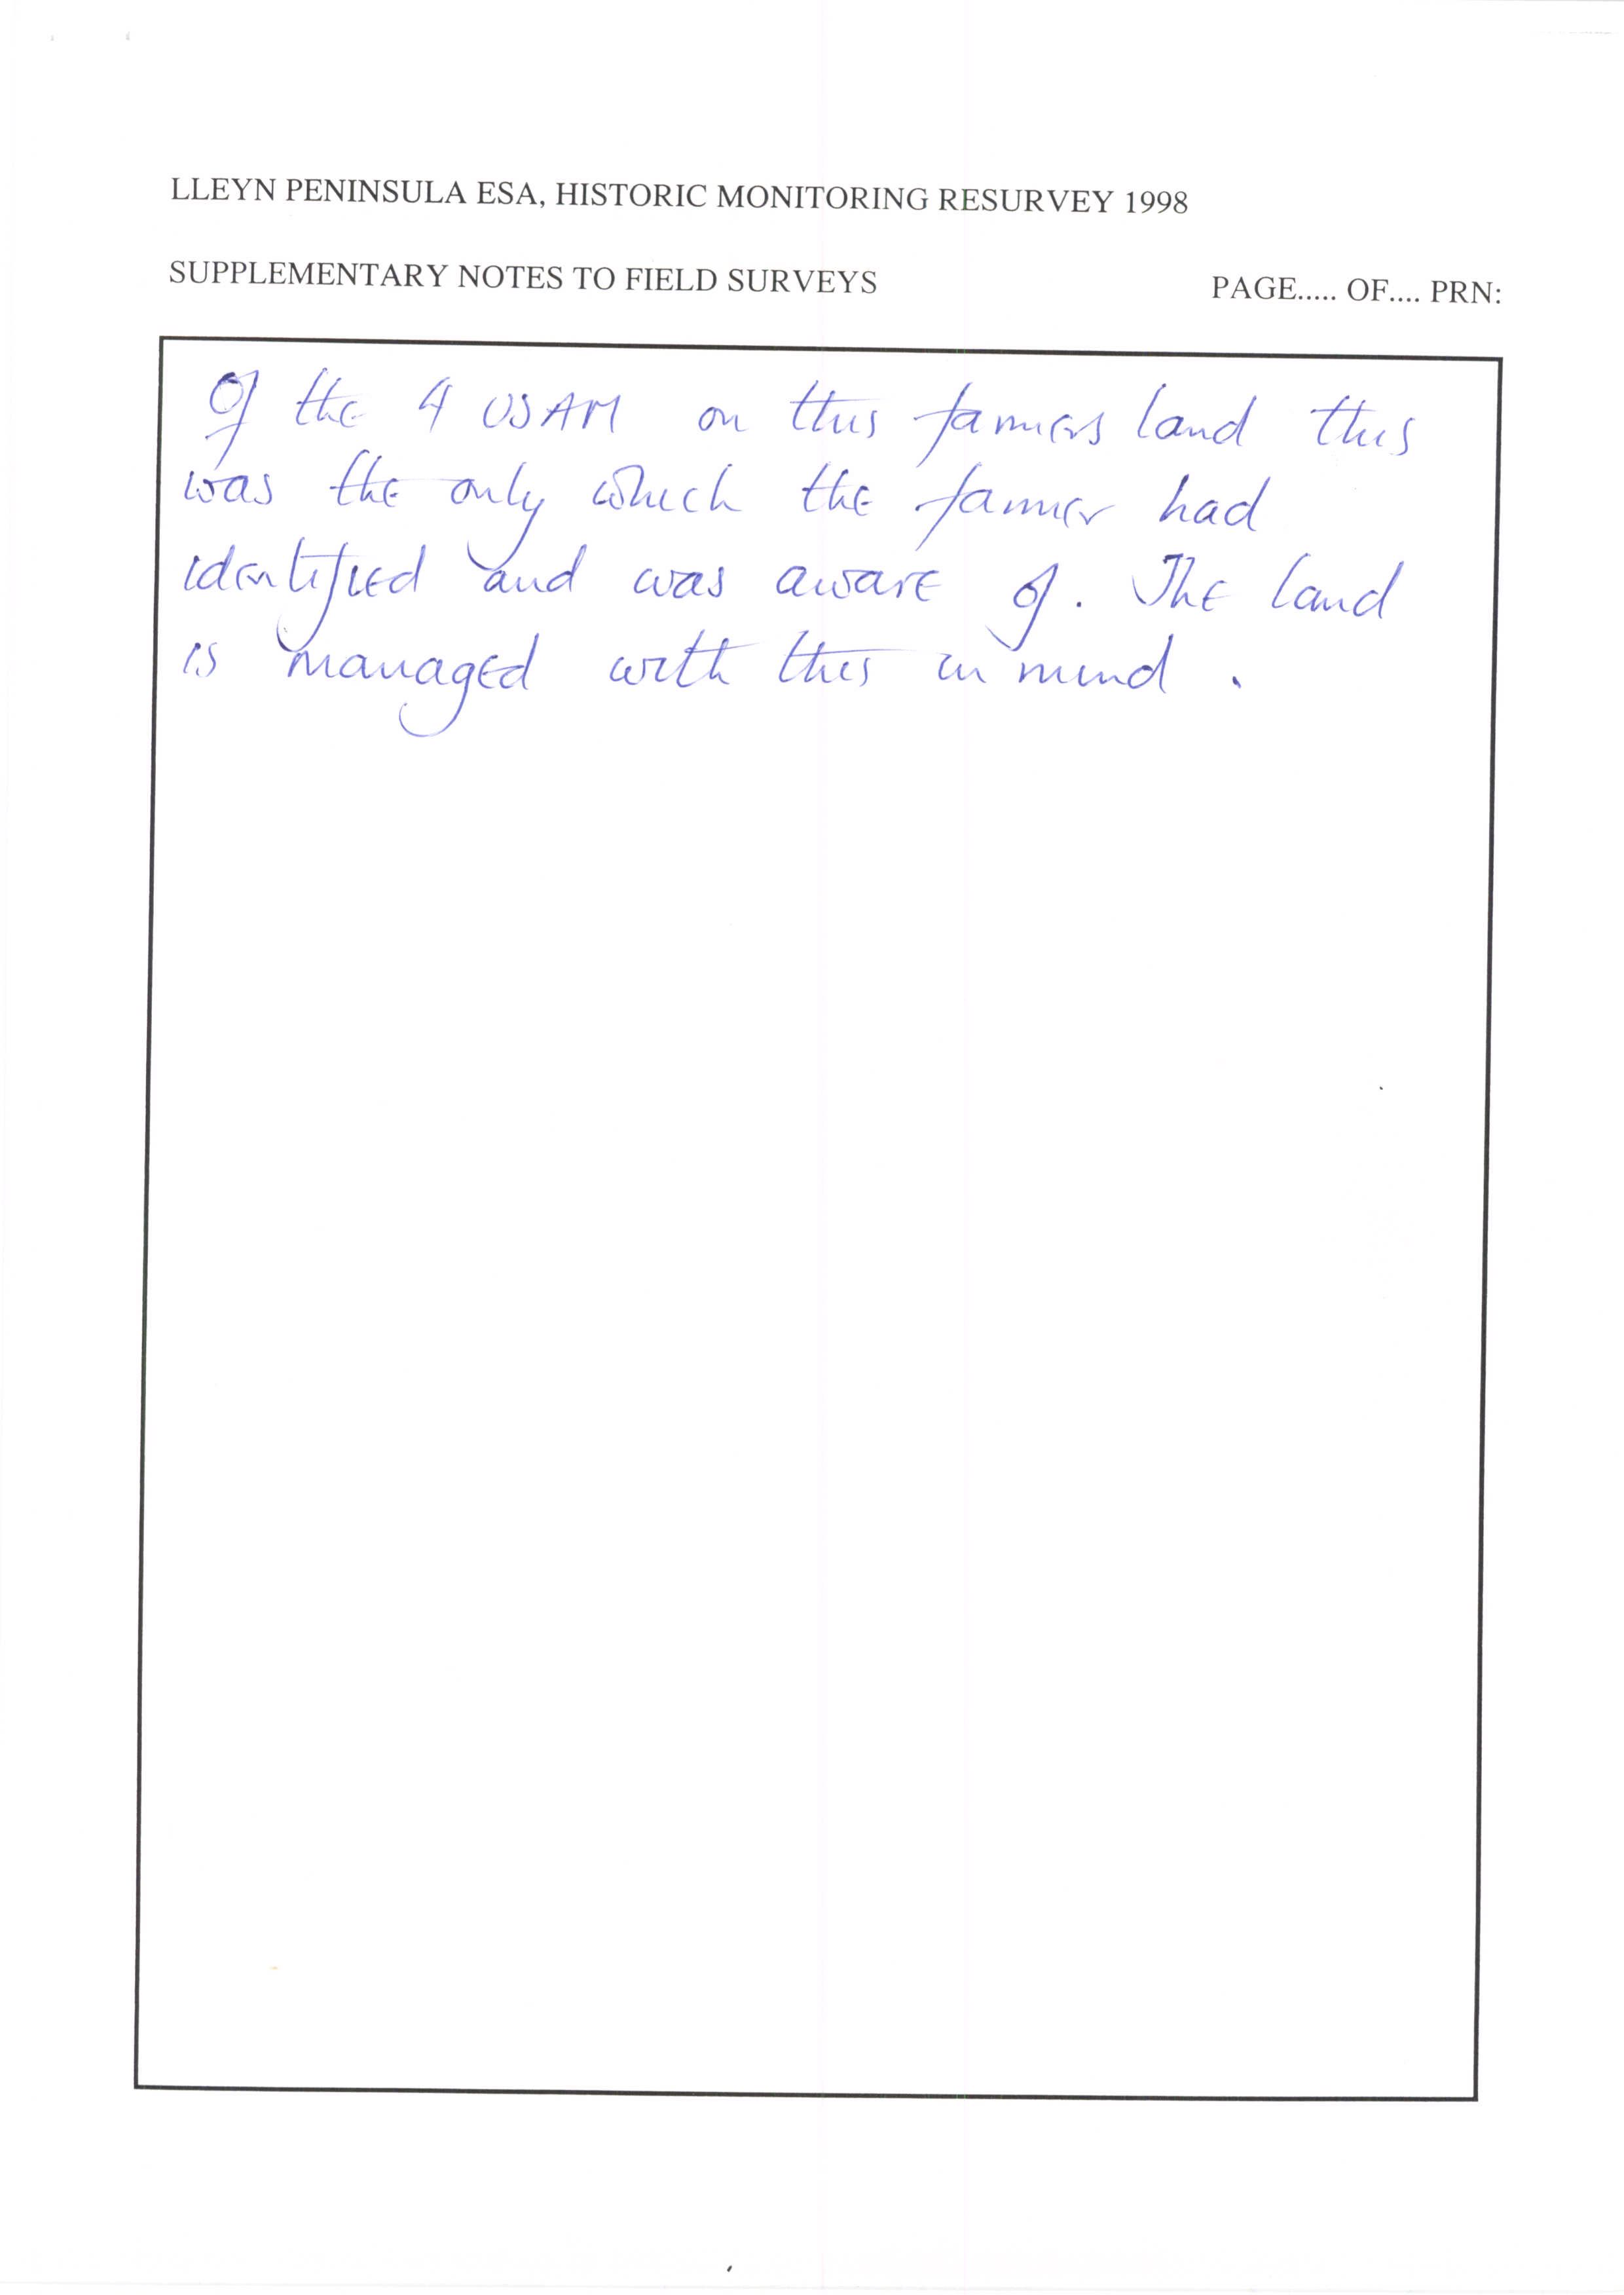 LLEYN PENINSULA ESA, HISTORIC MONITORING RESURVEY 1998
SUPPLEMENTARY NOTES TO FIELD SURVEYS PAGE..... OF.... PRN:
Of the 4 USAM on this farmers land this
was the only which the farmer had
identified and was aware of. The land
is managed with this in mind.